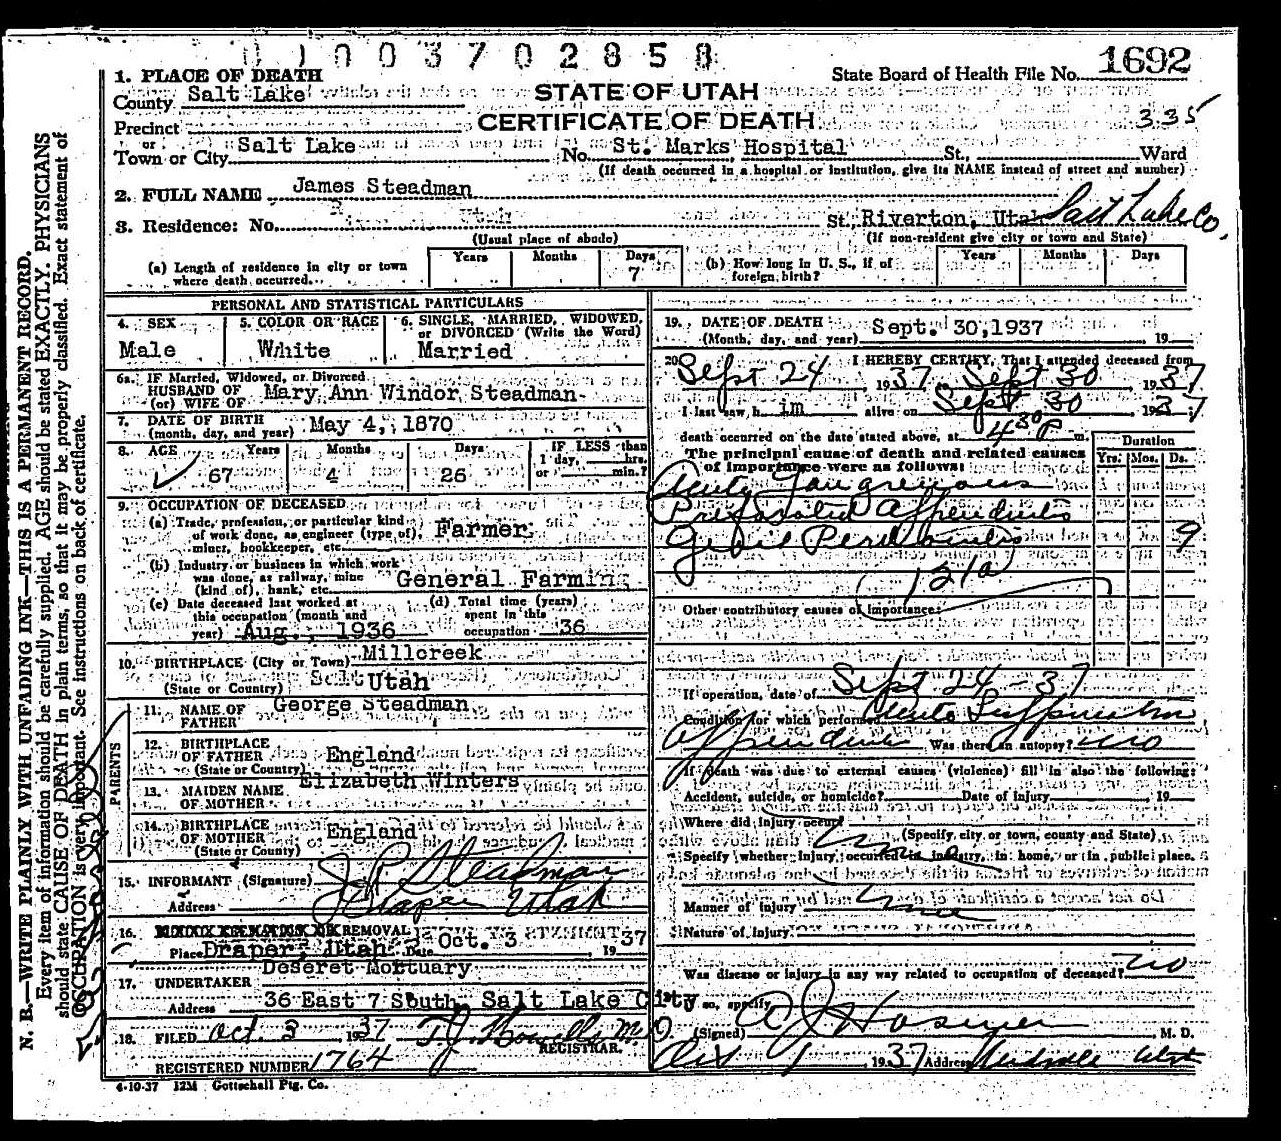 0 1 0 0 3 7 0 2 8 5 8
1. PLACE OF DEATH
State Board of Health File No. 1692
County Salt Lake
STATE OF UTAH
CERTIFICATE OF DEATH
335
Precinct
or
Town or City Salt Lake No. St. Marks Hospital St., Ward
(If death occurred in a hospital or institution, give its NAME instead of street and number)
2. FULL NAME James Steadman
3. Residence: No. St. Riverton, Utah Salt Lake Co.
(Usual place of abode) (If non-resident give city or town and State)
(a) Length of residence in city or town where death occurred Years Months Days 7
(b) How long in U. S., if of foreign birth? Years Months Days
PERSONAL AND STATISTICAL PARTICULARS
4. SEX Male
5. COLOR OR RACE White
6. SINGLE, MARRIED, WIDOWED, or DIVORCED (Write the Word) Married
6a. IF Married, Widowed, or Divorced
HUSBAND OF
(or) WIFE OF Mary Ann Windor Steadman
7. DATE OF BIRTH
(month, day, and year) May 4, 1870
8. AGE Years 67 Months 4 Days 26 IF LESS than 1 day, hrs. or min.?
9. OCCUPATION OF DECEASED
(a) Trade, profession, or particular kind of work done, as engineer (type of), miner, bookkeeper, etc. Farmer
(b) Industry or business in which work was done, as railway, mine (kind of), bank, etc. General Farming
(c) Date deceased last worked at this occupation (month and year) Aug., 1936
(d) Total time (years) spent in this occupation 36
10. BIRTHPLACE (City or Town) Millcreek
(State or Country) Utah
PARENTS
11. NAME OF FATHER George Steadman
12. BIRTHPLACE OF FATHER
(State or Country) England
13. MAIDEN NAME OF MOTHER Elizabeth Winters
14. BIRTHPLACE OF MOTHER
(State or County) England
15. INFORMANT (Signature) J R Steadman
Address Draper Utah
16. REMOVAL
Place Draper, Utah Date Oct. 3 1937
17. UNDERTAKER Deseret Mortuary
Address 36 East 7 South, Salt Lake City
18. FILED Oct. 3 1937 T.J. Howells M.D.
REGISTRAR.
REGISTERED NUMBER 1764
4-10-37 12M Gottschall Ptg. Co.
19. DATE OF DEATH
(Month, day, and year) Sept. 30, 1937 19
20. I HEREBY CERTIFY, That I attended deceased from
Sept 24 1937 Sept 30 1937
I last saw him alive on Sept 30 1937
death occurred on the date stated above, at 4 30 P m.
Duration
Yrs. Mos. Ds.
The principal cause of death and related causes of importance were as follows:
Acute Gangrenous
Perforated Appendicitis
Peritonitis 9
121a
Other contributory causes of importance:
If operation, date of Sept 24-37
Condition for which performed Acute Suppurative
Appendicitis Was there an autopsy? no
If death was due to external causes (violence) fill in also the following:
Accident, suicide, or homicide? Date of injury 19
Where did injury occur?
(Specify city or town, county and State)
Specify whether injury occurred in industry, in home, or in public place.
none
Manner of injury none
Nature of injury
Was disease or injury in any way related to occupation of deceased? no
If so, specify
(Signed) M. D.
Oct 1 1937 Address Midvale Utah
N. B.—WRITE PLAINLY WITH UNFADING INK—THIS IS A PERMANENT RECORD.
Every item of information should be carefully supplied. AGE should be stated EXACTLY. PHYSICIANS
should state CAUSE OF DEATH in plain terms, so that it may be properly classified. Exact statement of
OCCUPATION is very important. See instructions on back of certificate.